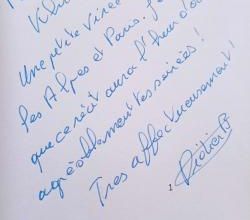 Une p'tite virée
les Alpes et Paris. J
que ce récit aura l'heur d'o
agréablement tes soirées !
Très affectueusement !
Didier B
1